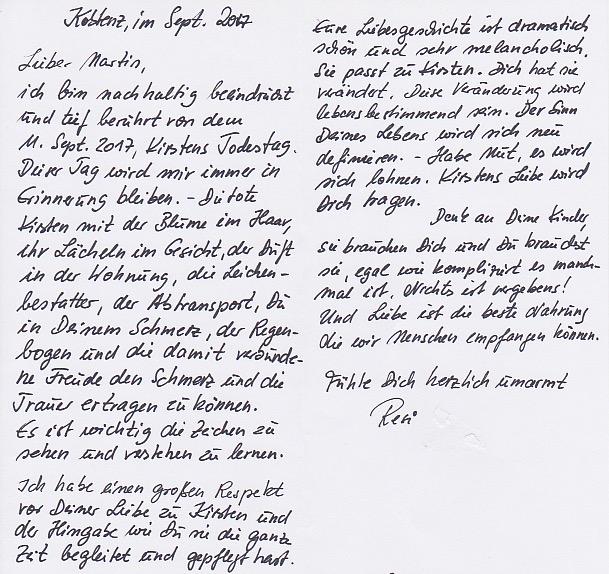 Koblenz, im Sept. 2017
Lieber Martin,
ich bin nachhaltig beeindruckt
und tief berührt von dem
11. Sept. 2017, Kirstens Todestag.
Dieser Tag wird mir immer in
Erinnerung bleiben. – Die tote
Kirsten mit der Blume im Haar,
ihr Lächeln im Gesicht, der Duft
in der Wohnung, die Leichen-
bestatter, der Abtransport, Du
in Deinem Schmerz, der Regen-
bogen und die damit verbunde-
ne Freude den Schmerz und die
Trauer ertragen zu können.
Es ist wichtig die Zeichen zu
sehen und verstehen zu lernen.
Ich habe einen großen Respekt
vor Deiner Liebe zu Kirsten und
der Hingabe wie Du sie die ganze
Zeit begleitet und gepflegt hast.
Eure Liebesgeschichte ist dramatisch
schön und sehr melancholisch.
Sie passt zu Kirsten. Dich hat sie
verändert. Diese Veränderung wird
lebensbestimmend sein. Der Sinn
Deines Lebens wird sich neu
definieren. – Habe Mut, es wird
sich lohnen. Kirstens Liebe wird
Dich tragen.
Denk an Deine Kinder,
sie brauchen Dich und Du brauchst
sie, egal wie kompliziert es manch-
mal ist. Nichts ist vergebens!
Und Liebe ist die beste Nahrung
die wir Menschen empfangen können.
Fühle Dich herzlich umarmt
Resi